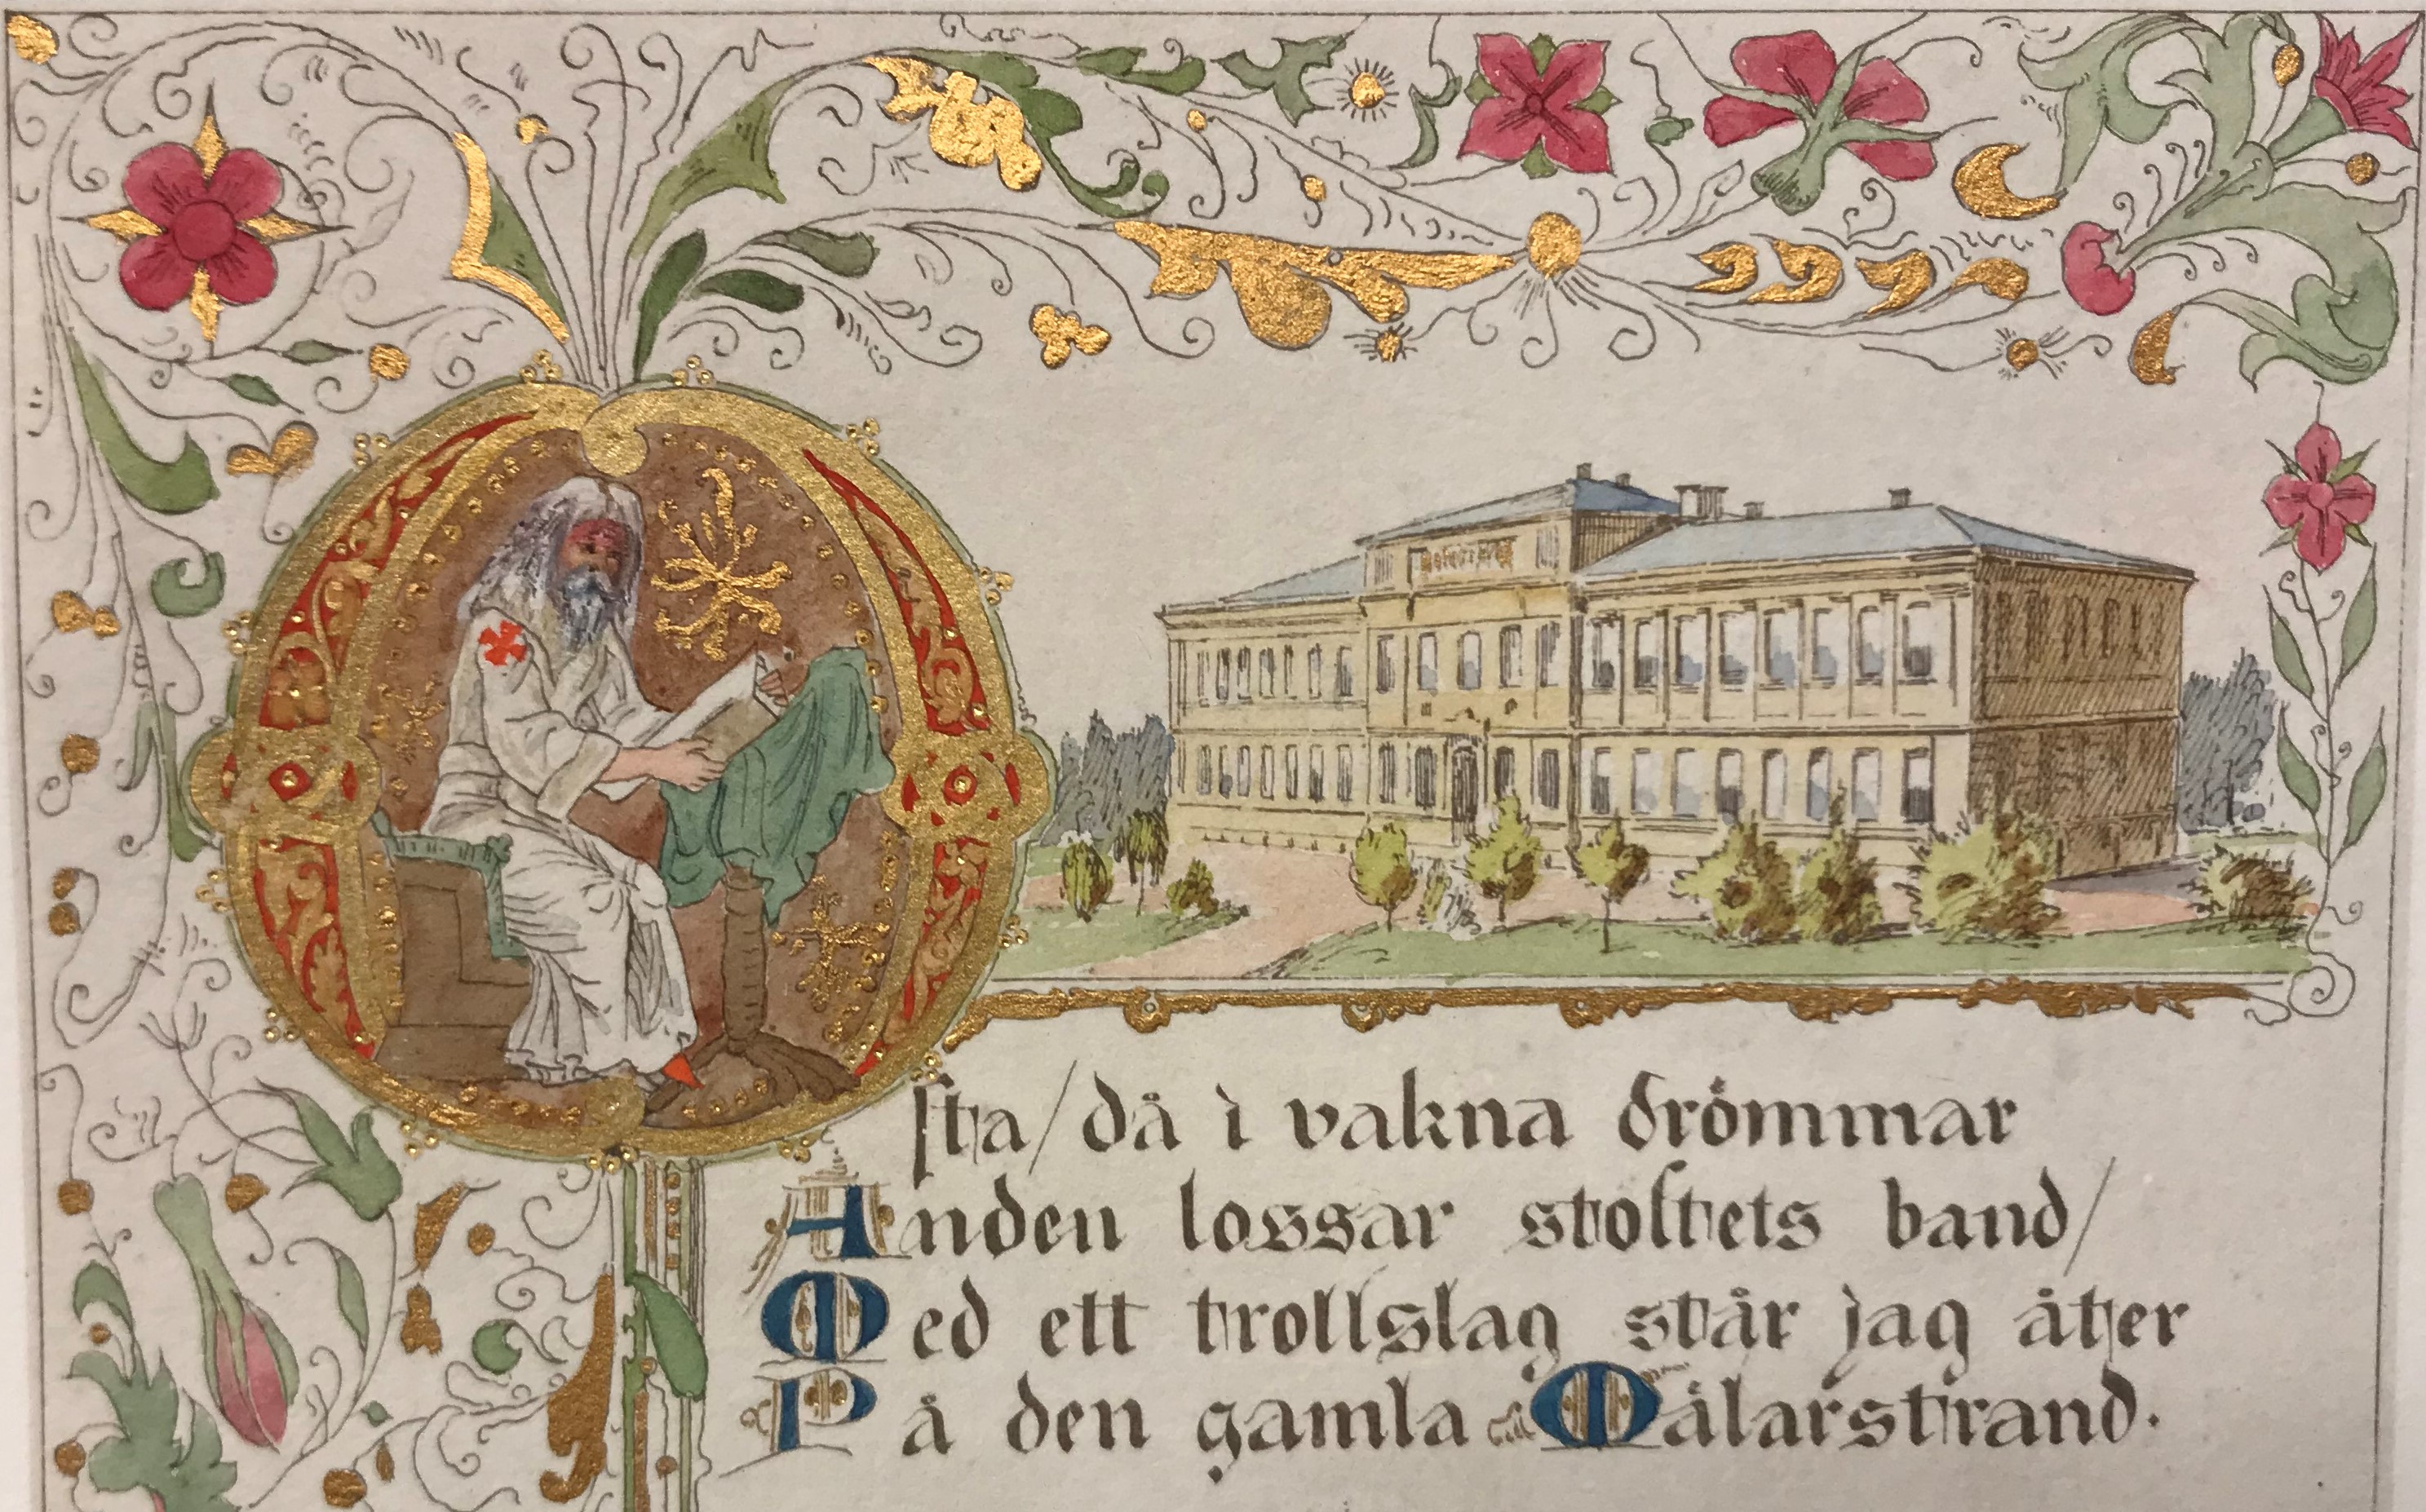 Ofta/då i vakna drömmar
Anden lossar stoftets band/
Med ett trollslag står jag åter
På den gamla Mälarstrand.